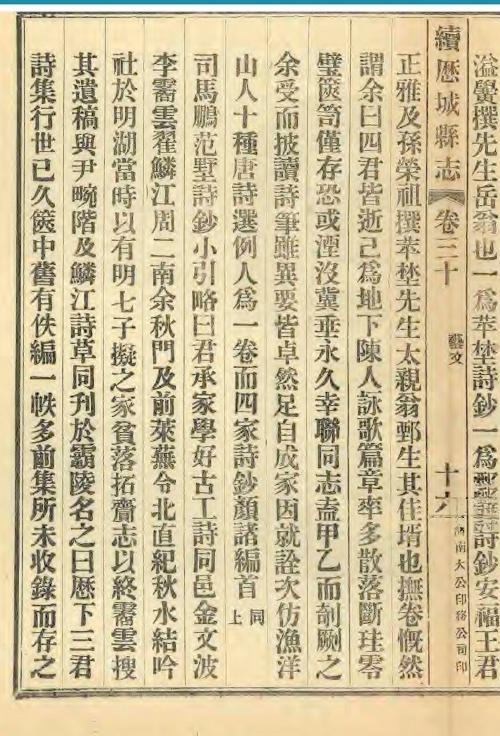 溢贒撰先生岳翁也一爲萃埜詩鈔一爲鄄詩鈔安福王君
續歷城縣志 卷三十 藝文 十六 濟南大公印務公司印
正雅及孫榮祖撰萃埜先生太親翁鄄生其佳壻也撫卷慨然
謂余曰四君皆逝已爲地下陳人詠歌篇章率多散落斷珪零
璧篋笥僅存恐或湮沒冀垂永久幸聯同志盍甲乙而剞劂之
余受而披讀詩筆雖異要皆卓然足自成家因就詮次仿漁洋
山人十種唐詩選例人爲一卷而四家詩鈔顏諸編首 同上
司馬鵬范墅詩鈔小引略曰君承家學好古工詩同邑金文波
李霱雲翟鱗江周二南余秋門及前萊蕪令北直紀秋水結吟
社於明湖當時以有明七子擬之家貧落拓齎志以終霱雲搜
其遺稿與尹畹階及鱗江詩草同刊於霸陵名之曰歷下三君
詩集行世已久篋中舊有佚編一帙多前集所未收錄而存之